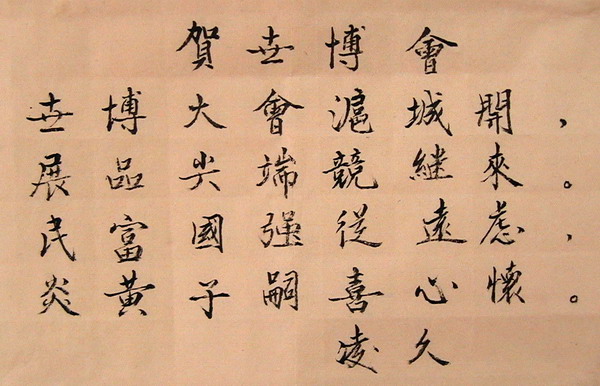 賀世博會
世博大會滬城開，
展品尖端競繼來。
民富國强從遠慮，
炎黄子嗣喜心懷。
凌久